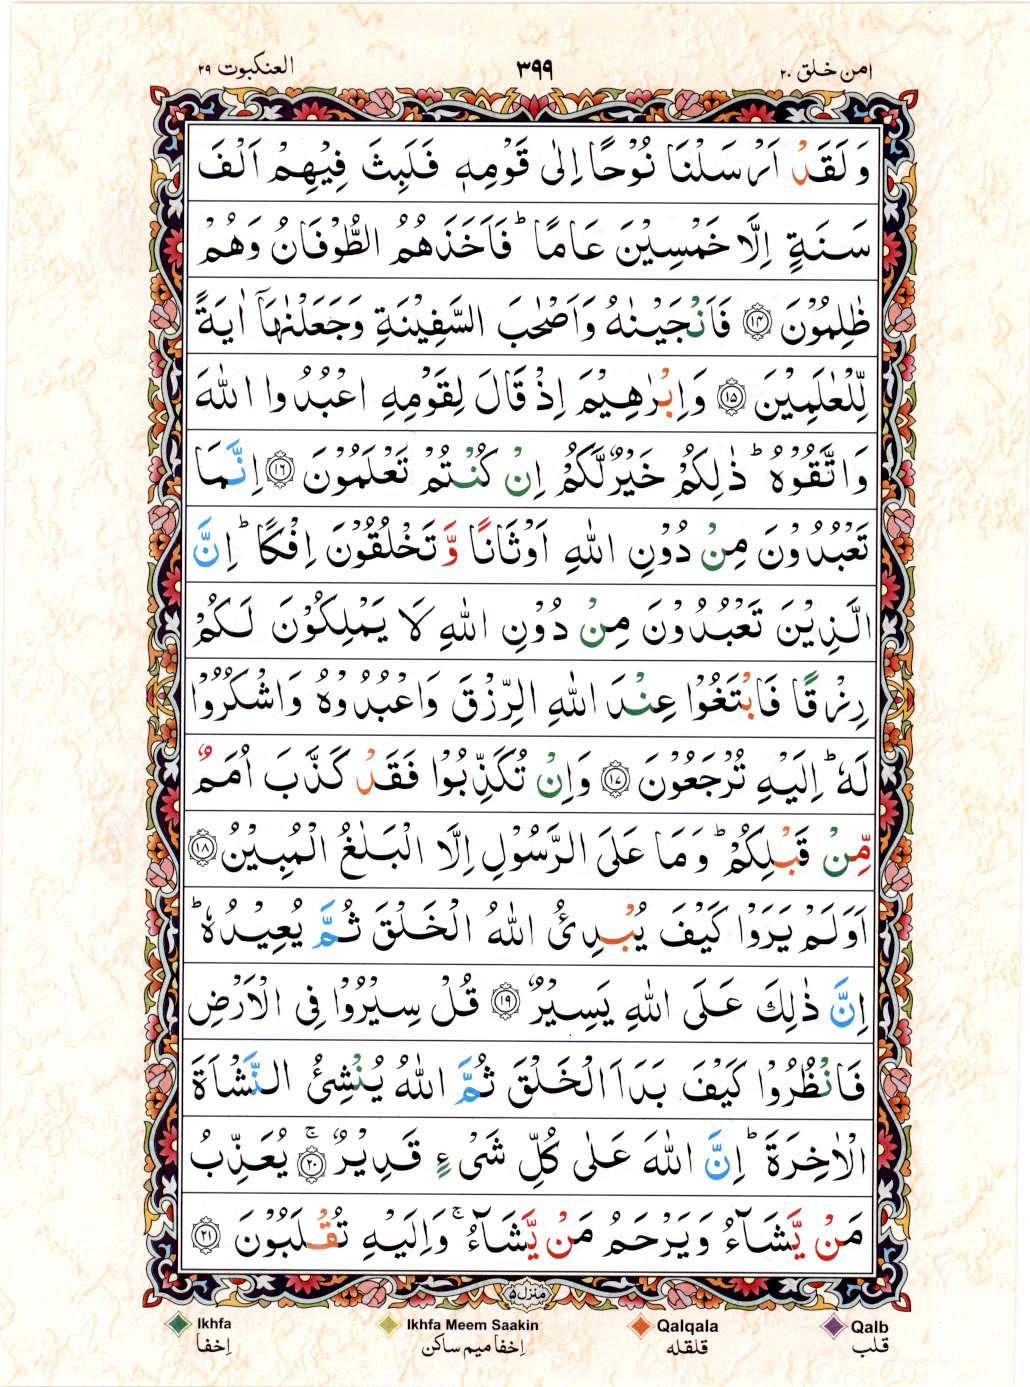 امن خلق ۲۰
۳۹۹
العنكبوت ۲۹
وَلَقَدْ اَرْسَلْنَا نُوْحًا اِلٰى قَوْمِهٖ فَلَبِثَ فِيْهِمْ اَلْفَ
سَنَةٍ اِلَّا خَمْسِيْنَ عَامًا ؕ فَاَخَذَهُمُ الطُّوْفَانُ وَهُمْ
ظٰلِمُوْنَ ﴿۱۴﴾ فَاَنْجَيْنٰهُ وَاَصْحٰبَ السَّفِيْنَةِ وَجَعَلْنٰهَاۤ اٰيَةً
لِّلْعٰلَمِيْنَ ﴿۱۵﴾ وَاِبْرٰهِيْمَ اِذْ قَالَ لِقَوْمِهِ اعْبُدُوا اللّٰهَ
وَاتَّقُوْهُ ؕ ذٰلِكُمْ خَيْرٌ لَّكُمْ اِنْ كُنْتُمْ تَعْلَمُوْنَ ﴿۱۶﴾ اِنَّمَا
تَعْبُدُوْنَ مِنْ دُوْنِ اللّٰهِ اَوْثَانًا وَّ تَخْلُقُوْنَ اِفْكًا ؕ اِنَّ
الَّذِيْنَ تَعْبُدُوْنَ مِنْ دُوْنِ اللّٰهِ لَا يَمْلِكُوْنَ لَكُمْ
رِزْقًا فَابْتَغُوْا عِنْدَ اللّٰهِ الرِّزْقَ وَاعْبُدُوْهُ وَاشْكُرُوْا
لَهٗ ؕ اِلَيْهِ تُرْجَعُوْنَ ﴿۱۷﴾ وَاِنْ تُكَذِّبُوْا فَقَدْ كَذَّبَ اُمَمٌ
مِّنْ قَبْلِكُمْ ؕ وَمَا عَلَى الرَّسُوْلِ اِلَّا الْبَلٰغُ الْمُبِيْنُ ﴿۱۸﴾
اَوَلَمْ يَرَوْا كَيْفَ يُبْدِئُ اللّٰهُ الْخَلْقَ ثُمَّ يُعِيْدُهٗ ؕ
اِنَّ ذٰلِكَ عَلَى اللّٰهِ يَسِيْرٌ ﴿۱۹﴾ قُلْ سِيْرُوْا فِى الْاَرْضِ
فَانْظُرُوْا كَيْفَ بَدَاَ الْخَلْقَ ثُمَّ اللّٰهُ يُنْشِئُ النَّشْاَةَ
الْاٰخِرَةَ ؕ اِنَّ اللّٰهَ عَلٰى كُلِّ شَىْءٍ قَدِيْرٌ ۚ ﴿۲۰﴾ يُعَذِّبُ
مَنْ يَّشَآءُ وَيَرْحَمُ مَنْ يَّشَآءُ ۚ وَاِلَيْهِ تُقْلَبُوْنَ ﴿۲۱﴾
منزل ۵
Ikhfa Ikhfa Meem Saakin Qalqala Qalb
اِخفا اِخفا میم ساکن قلقلہ قلب